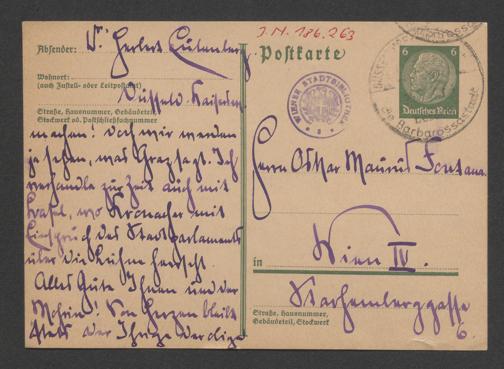 J.N. 186.263
Absender: Dr. Herbert Eulenberg
Wohnort:
(auch Zustell- oder Leitpostamt)
Düsseldorf Kaiserswerth
Straße, Hausnummer, Gebäudeteil,
Stockwerk od. Postschließfachnummer
machen! Doch wir werden
ja sehen, was Graz sagt. Ich
verhandle zur Zeit auch mit
Basel, wo Kronacher mit
Einspruch des Stadtparlaments
über die Bühne herrscht.
Alles Gute Ihnen und der
Von Herzen bleibt
stets der Ihrige
Postkarte
WIENER STADTBIBLIOTHEK
6 6
Deutsches Reich
Barbarossa
Herrn Oskar Maurus Fontana
in Wien IV.
Starhemberggasse
6.
Straße, Hausnummer,
Gebäudeteil, Stockwerk